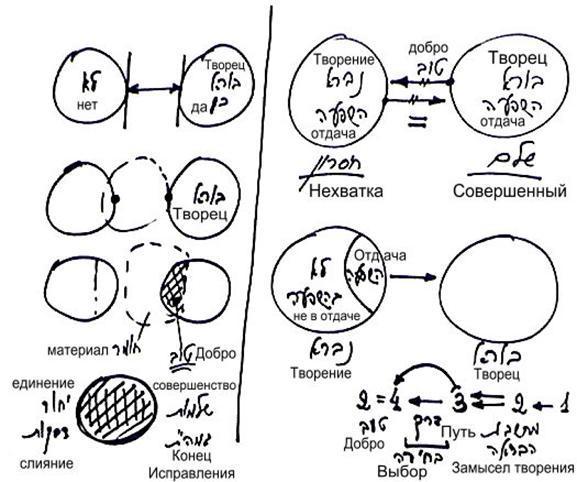 לא
нет
Творец
בורא
כן
да
בורא
Творец
материал חומר טוב Добро
единение
יחוד
דבקות
слияние
совершенство
שלמות
גמה"ת
Конец
Исправления
Творение
נברא
השפעה
отдача
добро
טוב
=
Творец
בורא
השפעה
отдача
חסרון
Нехватка
שלם
Совершенный
לא
בהשפעה
не в отдаче
Отдача
השפעה
נברא
Творение
בורא
Творец
2 = 4 ← 3 ⇐ 2 ← 1
טוב
Добро
דרך
Путь
בחירה
Выбор
מחשבת
הבריאה
Замысел творения